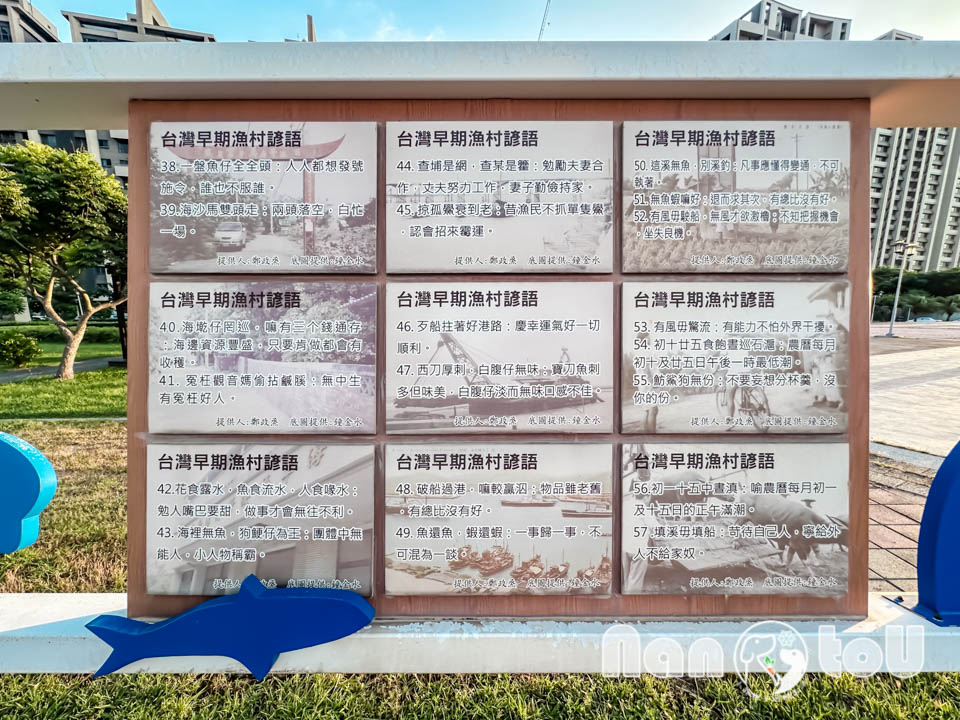 台灣早期漁村諺語
38.一盤魚仔全全頭：人人都想發號
施令，誰也不服誰。
39.海沙馬雙頭走：兩頭落空，白忙
一場。
提供人：鄭政烝　底圖提供：鐘金水
台灣早期漁村諺語
44.查埔是網，查某是籗：勉勵夫妻合
作，丈夫努力工作，妻子勤儉持家。
45.掠孤鱟衰到老：昔漁民不抓單隻鱟
，認會招來霉運。
提供人：鄭政烝　底圖提供：鐘金水
台灣早期漁村諺語
50.這溪無魚，別溪釣：凡事應懂得變通，不可
執著。
51.無魚蝦嘛好：退而求其次，有總比沒有好。
52.有風毋駛船，無風才欲激櫓：不知把握機會
，坐失良機。
提供人：鄭政烝　底圖提供：鐘金水
台灣早期漁村諺語
40.海墘仔罔巡，嘛有三个錢通存
：海邊資源豐盛，只要肯做都會有
收穫。
41. 冤枉觀音媽偷拈鹹腥：無中生
有冤枉好人。
提供人：鄭政烝　底圖提供：鐘金水
台灣早期漁村諺語
46.歹船拄著好港路：慶幸運氣好一切
順利。
47.西刀厚刺，白腹仔無味：寶刀魚刺
多但味美，白腹仔淡而無味口感不佳。
提供人：鄭政烝　底圖提供：鐘金水
台灣早期漁村諺語
53.有風毋驚流：有能力不怕外界干擾。
54.初十廿五食飽晝巡石滬：農曆每月
初十及廿五日午後一時最低潮。
55.魴鯊狗無份：不要妄想分杯羹，沒
你的份。
提供人：鄭政烝　底圖提供：鐘金水
台灣早期漁村諺語
42.花食露水，魚食流水，人食喙水：
勉人嘴巴要甜，做事才會無往不利。
43.海裡無魚，狗鯁仔為王：團體中無
能人，小人物稱霸。
提供人：鄭政烝　底圖提供：鐘金水
台灣早期漁村諺語
48.破船過港，嘛較贏泅：物品雖老舊
，有總比沒有好。
49.魚還魚，蝦還蝦：一事歸一事，不
可混為一談。
提供人：鄭政烝　底圖提供：鐘金水
台灣早期漁村諺語
56.初一十五中晝滇：喻農曆每月初一
及十五日的正午滿潮。
57.填溪毋填船：苛待自己人，寧給外
人不給家奴。
提供人：鄭政烝　底圖提供：鐘金水
Nan toU